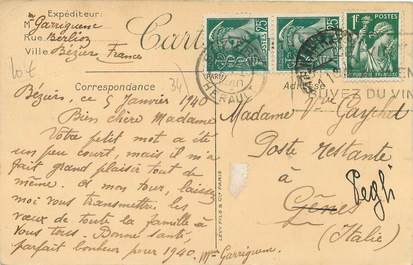 Expéditeur:
M Garriguenc
Rue Berlioz
Ville Béziers, France
Carte
25
25
1F
HERAULT
BUVEZ DU VIN
10€
34
Correspondance
Adresse
Béziers ce 5 Janvier 1940
Bien chère Madame
Votre petit mot a été
un peu court, mais il m'a
fait grand plaisir tout de
même. A mon tour, laissez
moi vous transmettre les
vœux de toute la famille à
vous tous. Bonne santé,
parfait bonheur pour 1940.
Mme Garriguenc
LEVY FILS & Cie PARIS
Madame Vve Gaychet
Poste Restante
à
Gênes Pegli
(Italie)